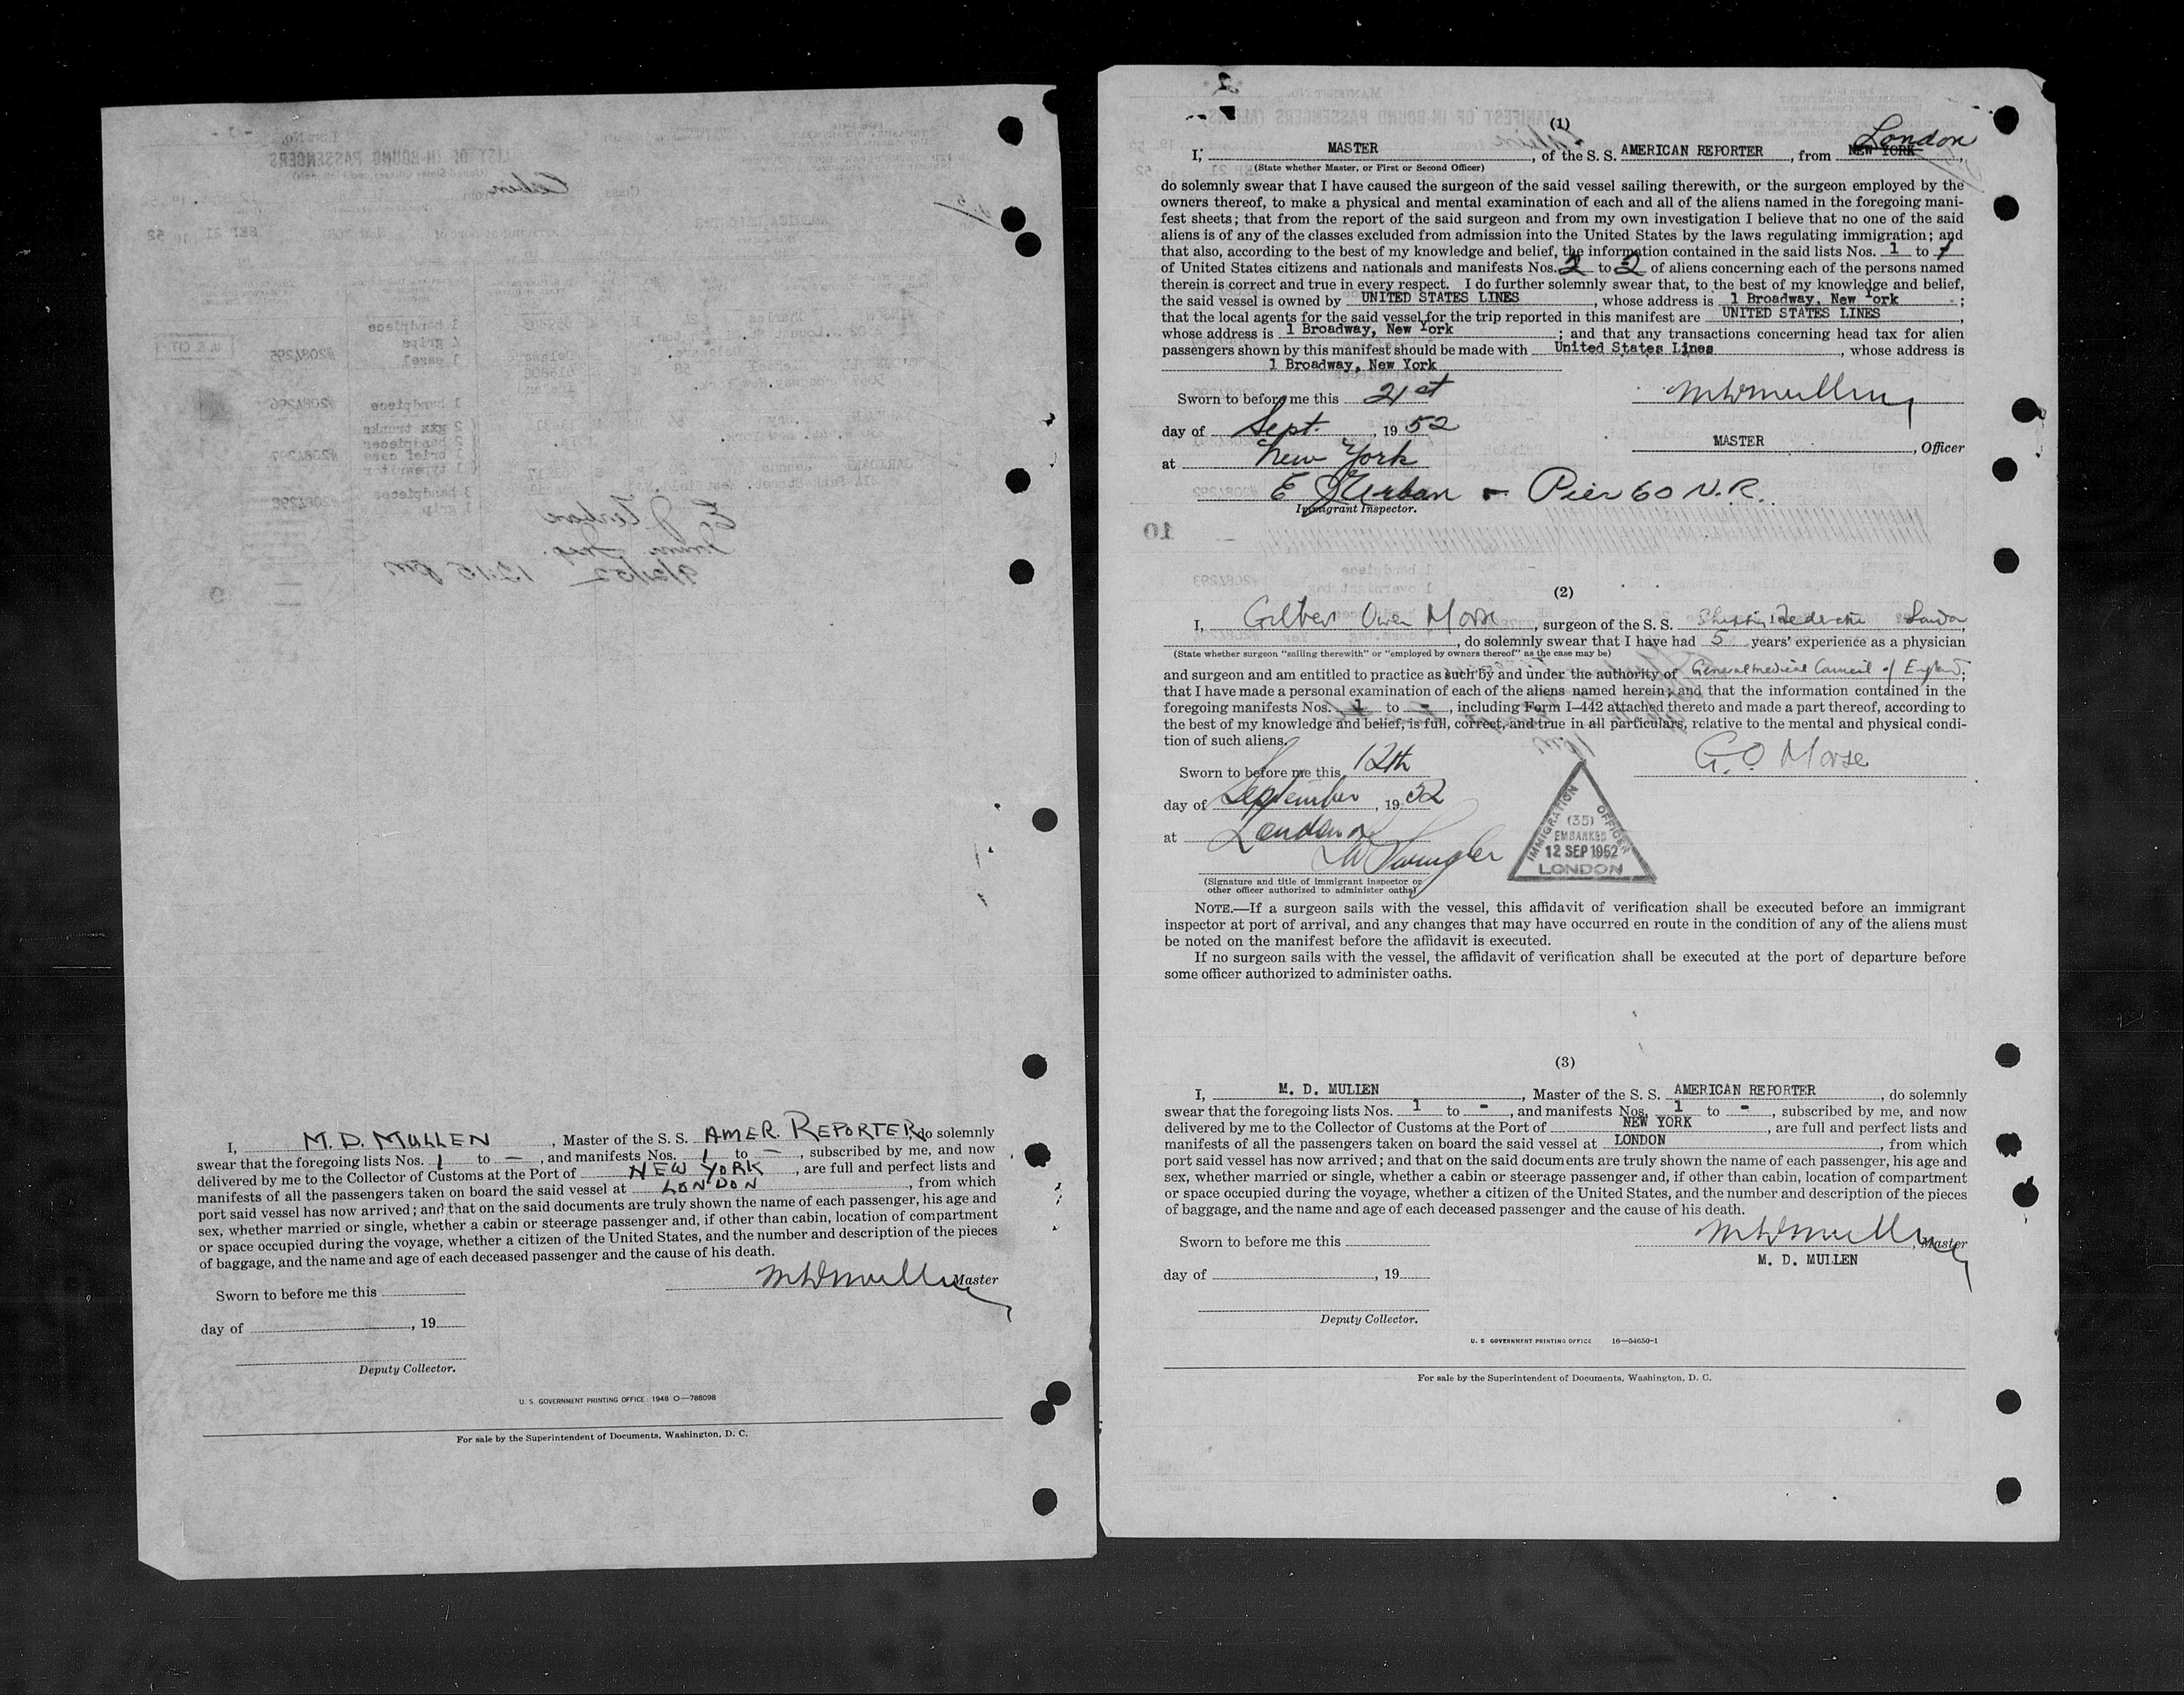 I, M. D. MULLEN, Master of the S. S. AMER. REPORTER, do solemnly
swear that the foregoing lists Nos. 1 to –, and manifests Nos. 1 to –, subscribed by me, and now
delivered by me to the Collector of Customs at the Port of NEW YORK, are full and perfect lists and
manifests of all the passengers taken on board the said vessel at LONDON, from which
port said vessel has now arrived; and that on the said documents are truly shown the name of each passenger, his age and
sex, whether married or single, whether a cabin or steerage passenger and, if other than cabin, location of compartment
or space occupied during the voyage, whether a citizen of the United States, and the number and description of the pieces
of baggage, and the name and age of each deceased passenger and the cause of his death.
M D Mullen Master
Sworn to before me this
day of , 19
Deputy Collector.
U. S. GOVERNMENT PRINTING OFFICE: 1948 O—788098
For sale by the Superintendent of Documents, Washington, D. C.
(1)
London
I, MASTER, of the S. S. AMERICAN REPORTER, from NEW YORK,
(State whether Master, or First or Second Officer)
do solemnly swear that I have caused the surgeon of the said vessel sailing therewith, or the surgeon employed by the
owners thereof, to make a physical and mental examination of each and all of the aliens named in the foregoing mani-
fest sheets; that from the report of the said surgeon and from my own investigation I believe that no one of the said
aliens is of any of the classes excluded from admission into the United States by the laws regulating immigration; and
that also, according to the best of my knowledge and belief, the information contained in the said lists Nos. 1 to 1
of United States citizens and nationals and manifests Nos. 2 to 2 of aliens concerning each of the persons named
therein is correct and true in every respect. I do further solemnly swear that, to the best of my knowledge and belief,
the said vessel is owned by UNITED STATES LINES, whose address is 1 Broadway, New York;
that the local agents for the said vessel for the trip reported in this manifest are UNITED STATES LINES,
whose address is 1 Broadway, New York; and that any transactions concerning head tax for alien
passengers shown by this manifest should be made with United States Lines, whose address is
1 Broadway, New York
Sworn to before me this 21st
M D Mullen
day of Sept., 1952
MASTER, Officer
at New York
E J Urban – Pier 60 N.R.
Immigrant Inspector.
10
(2)
I, Gilbert Owen Morse, surgeon of the S. S. Shipping Federation London,
, do solemnly swear that I have had 5 years' experience as a physician
(State whether surgeon "sailing therewith" or "employed by owners thereof" as the case may be)
and surgeon and am entitled to practice as such by and under the authority of General Medical Council of England;
that I have made a personal examination of each of the aliens named herein; and that the information contained in the
foregoing manifests Nos. 1 to –, including Form I–442 attached thereto and made a part thereof, according to
the best of my knowledge and belief, is full, correct, and true in all particulars, relative to the mental and physical condi-
tion of such aliens.
Sworn to before me this 12th
G. O. Morse
day of September, 1952
at London
IMMIGRATION OFFICER
(35)
EMBARKED
12 SEP 1952
LONDON
(Signature and title of immigrant inspector or
other officer authorized to administer oaths)
NOTE.—If a surgeon sails with the vessel, this affidavit of verification shall be executed before an immigrant
inspector at port of arrival, and any changes that may have occurred en route in the condition of any of the aliens must
be noted on the manifest before the affidavit is executed.
If no surgeon sails with the vessel, the affidavit of verification shall be executed at the port of departure before
some officer authorized to administer oaths.
(3)
I, M. D. MULLEN, Master of the S. S. AMERICAN REPORTER, do solemnly
swear that the foregoing lists Nos. 1 to -, and manifests Nos. 1 to -, subscribed by me, and now
delivered by me to the Collector of Customs at the Port of NEW YORK, are full and perfect lists and
manifests of all the passengers taken on board the said vessel at LONDON, from which
port said vessel has now arrived; and that on the said documents are truly shown the name of each passenger, his age and
sex, whether married or single, whether a cabin or steerage passenger and, if other than cabin, location of compartment
or space occupied during the voyage, whether a citizen of the United States, and the number and description of the pieces
of baggage, and the name and age of each deceased passenger and the cause of his death.
M D Mullen, Master
Sworn to before me this
M. D. MULLEN
day of , 19
Deputy Collector.
U. S. GOVERNMENT PRINTING OFFICE 16—54650-1
For sale by the Superintendent of Documents, Washington, D. C.